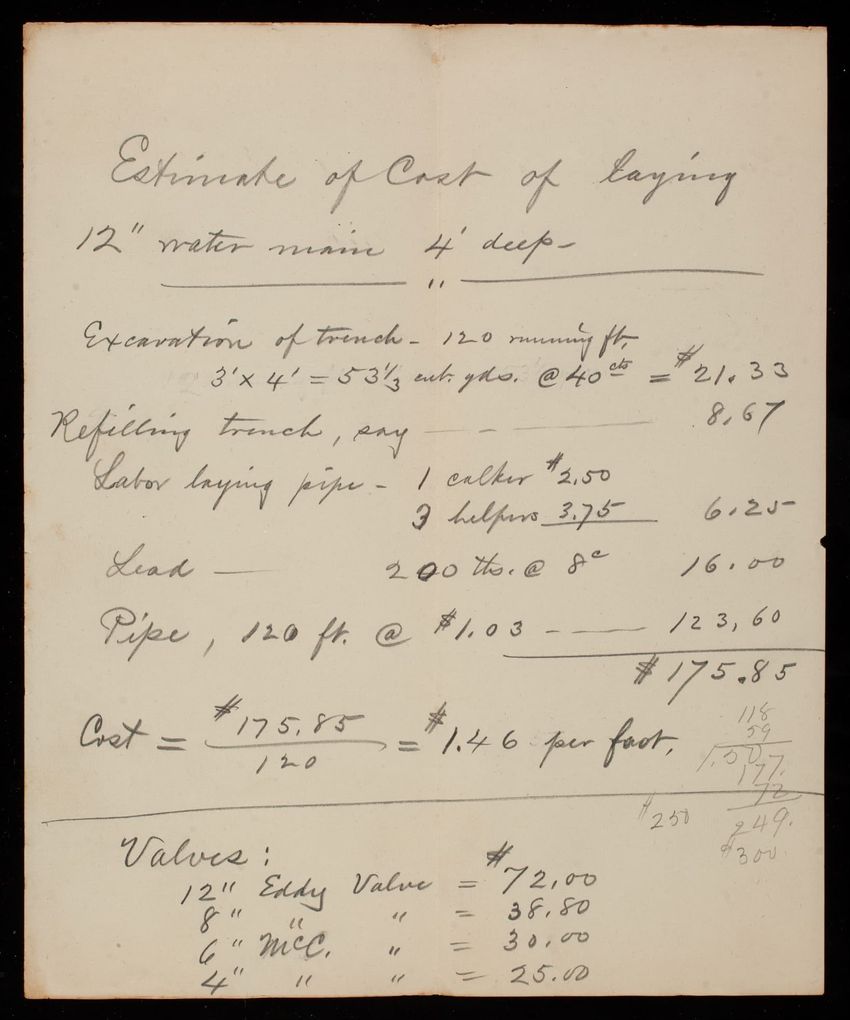 Estimate of Cost of laying
12" water main 4' deep-
"
Excavation of trench - 120 running ft.
3' x 4' = 53 1/3 cub. yds. @ 40 cts = $21.33
Refilling trench, say — - — 8.67
Labor laying pipe - 1 calker $2.50
3 helpers 3.75 6.25
Lead — 200 lbs. @ 8c 16.00
Pipe, 120 ft. @ $1.03 - — 123.60
$175.85
Cost = $175.85 / 120 = $1.46 per foot.
118
59
1.50
177.
72
$250 249.
$300.
Valves:
12" Eddy Valve = $72.00
8" " " = 38.80
6" McC. " = 30.00
4" " " = 25.00